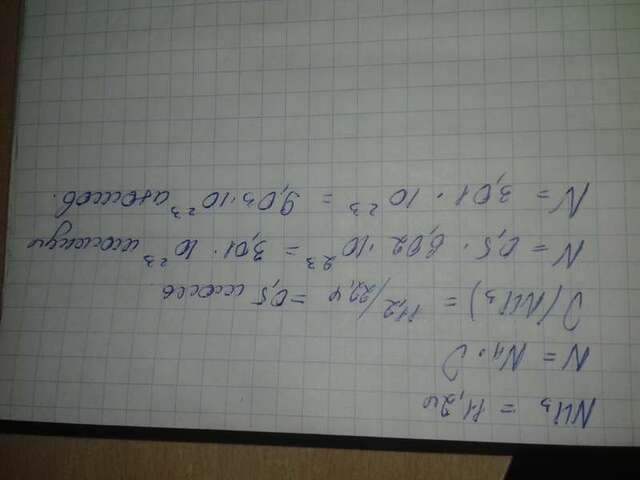 NH₃ = 11,2л
N = Nₐ · ν
ν(NH₃) = 11,2/22,4 = 0,5 моль
N = 0,5 · 6,02 · 10²³ = 3,01 · 10²³ молекул
N = 3,01 · 10²³ = 9,03 · 10²³ атомов.